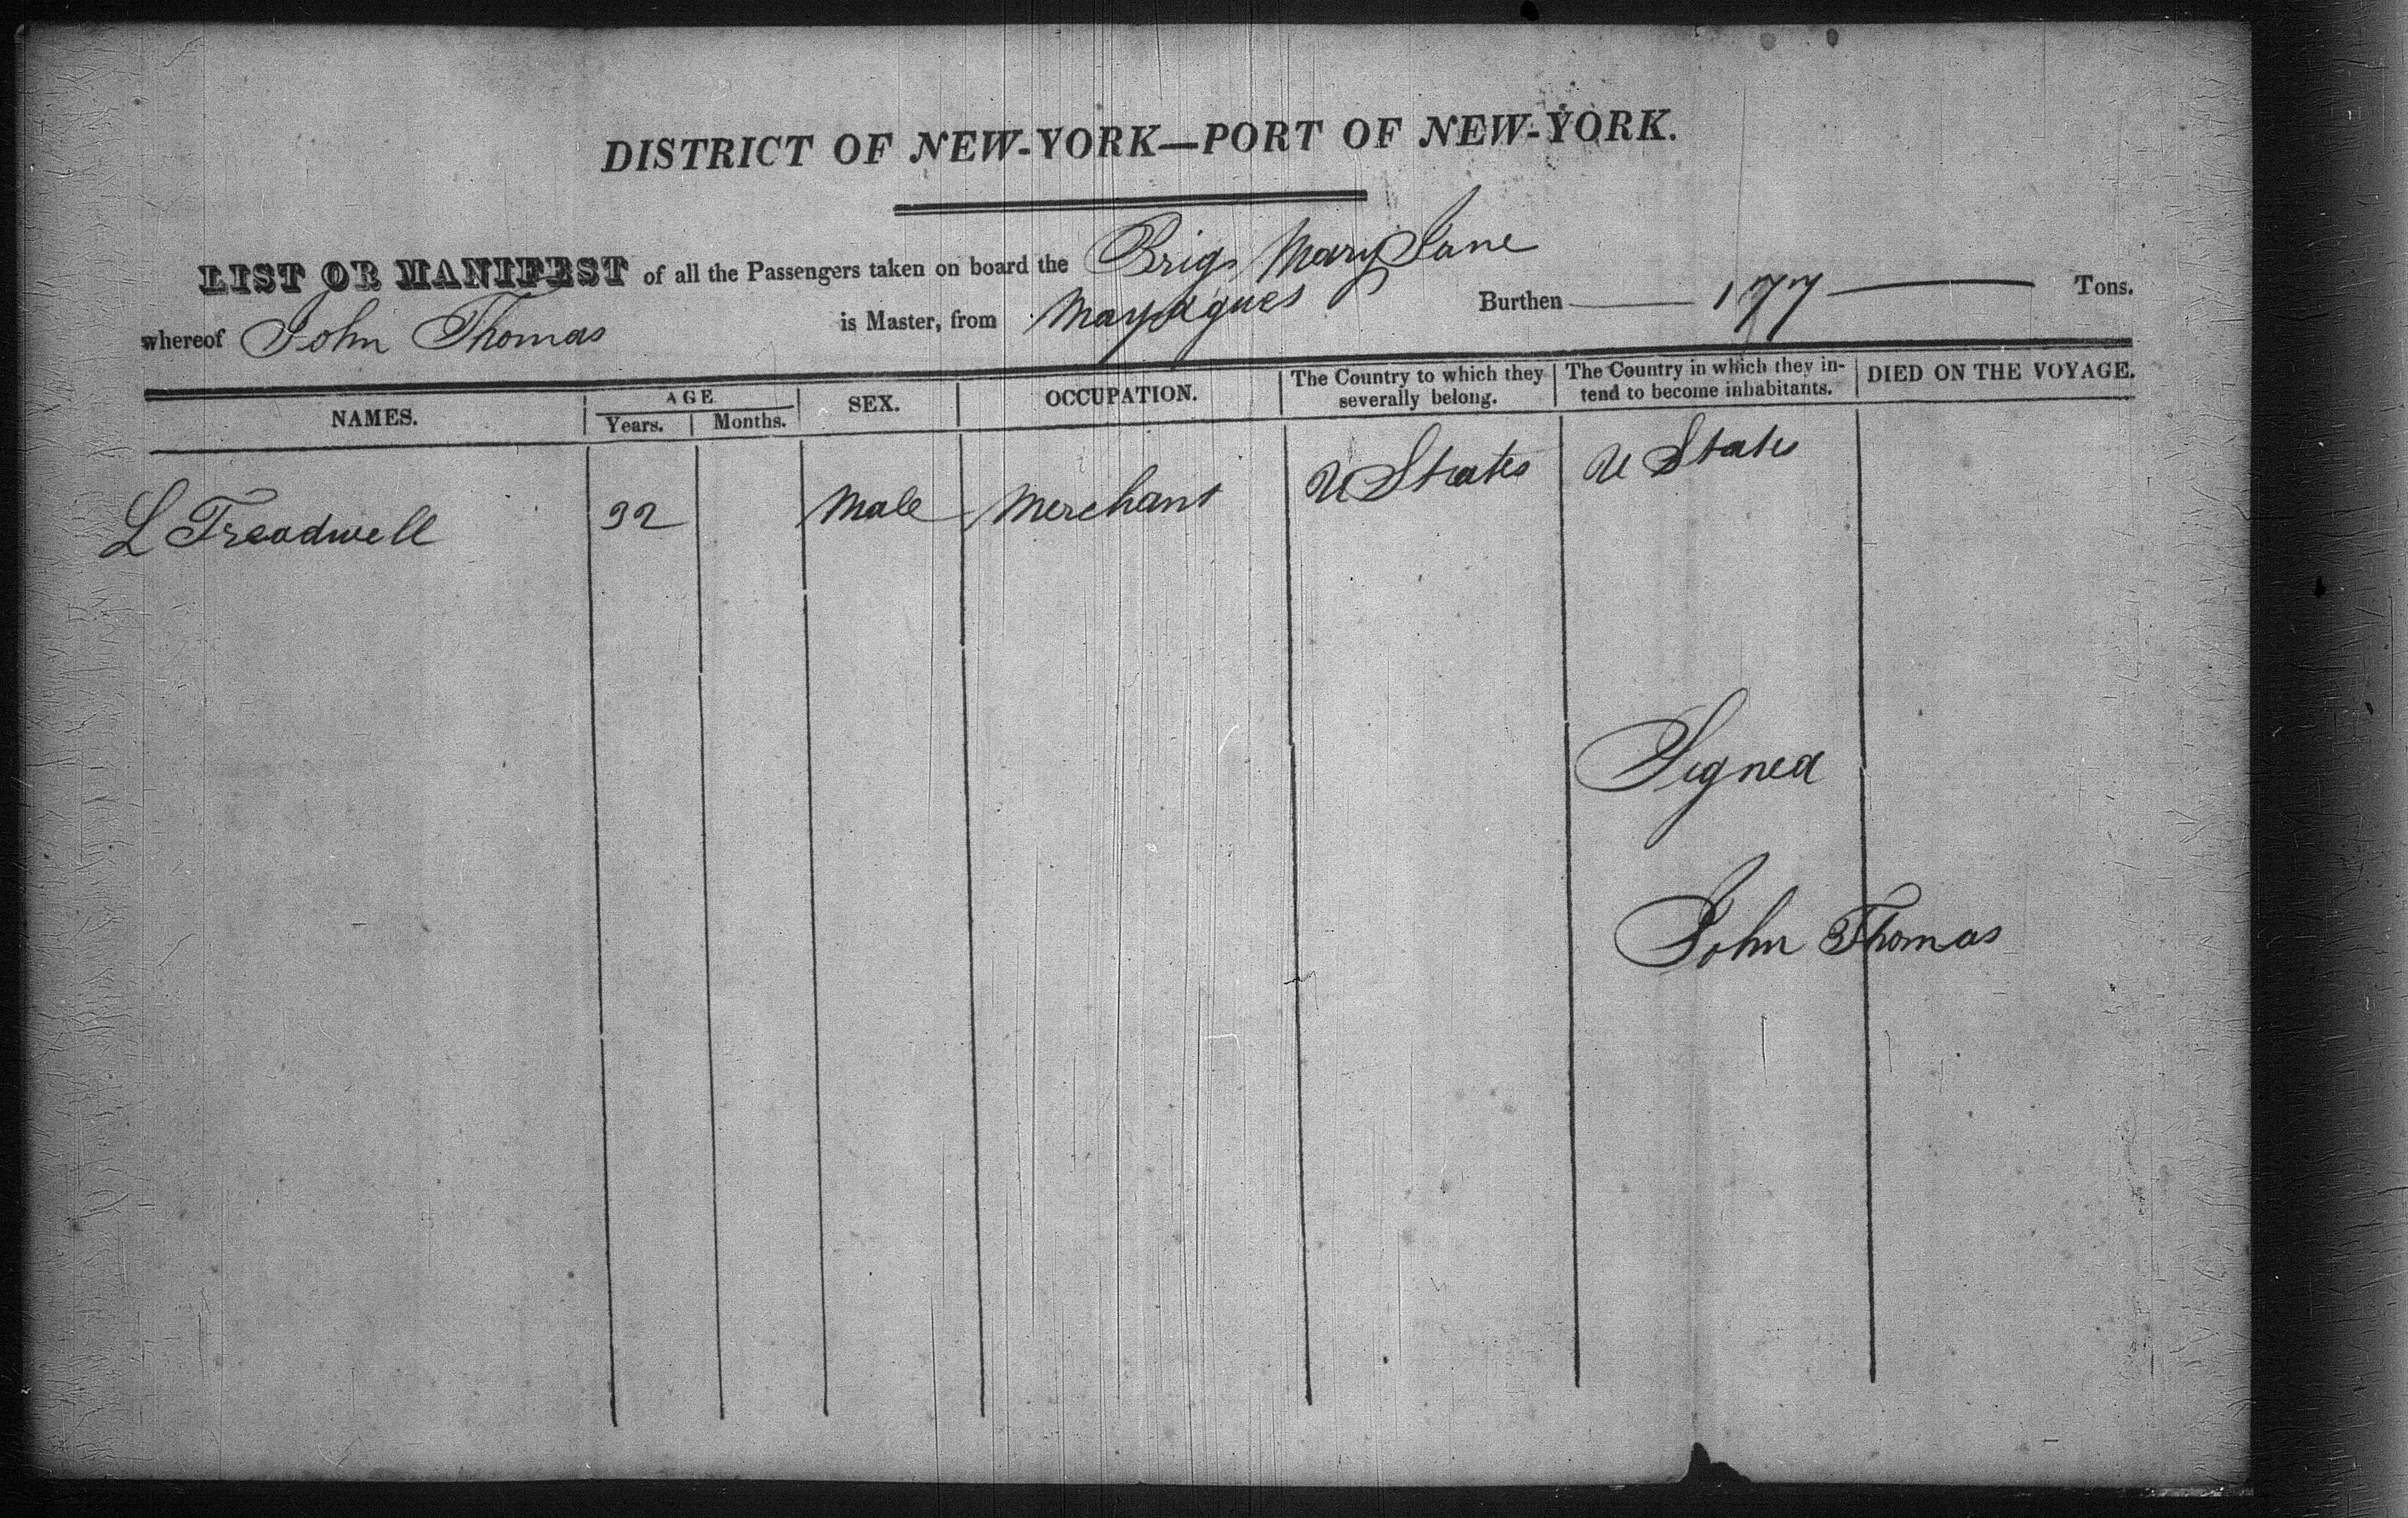 DISTRICT OF NEW-YORK—PORT OF NEW-YORK.
LIST OR MANIFEST of all the Passengers taken on board the Brig Mary Jane
whereof John Thomas is Master, from Mayagues Burthen 177 Tons.
NAMES. AGE Years. Months. SEX. OCCUPATION. The Country to which they severally belong. The Country in which they intend to become inhabitants. DIED ON THE VOYAGE.
L Treadwell 32 Male Merchant U States U States
Signed
John Thomas